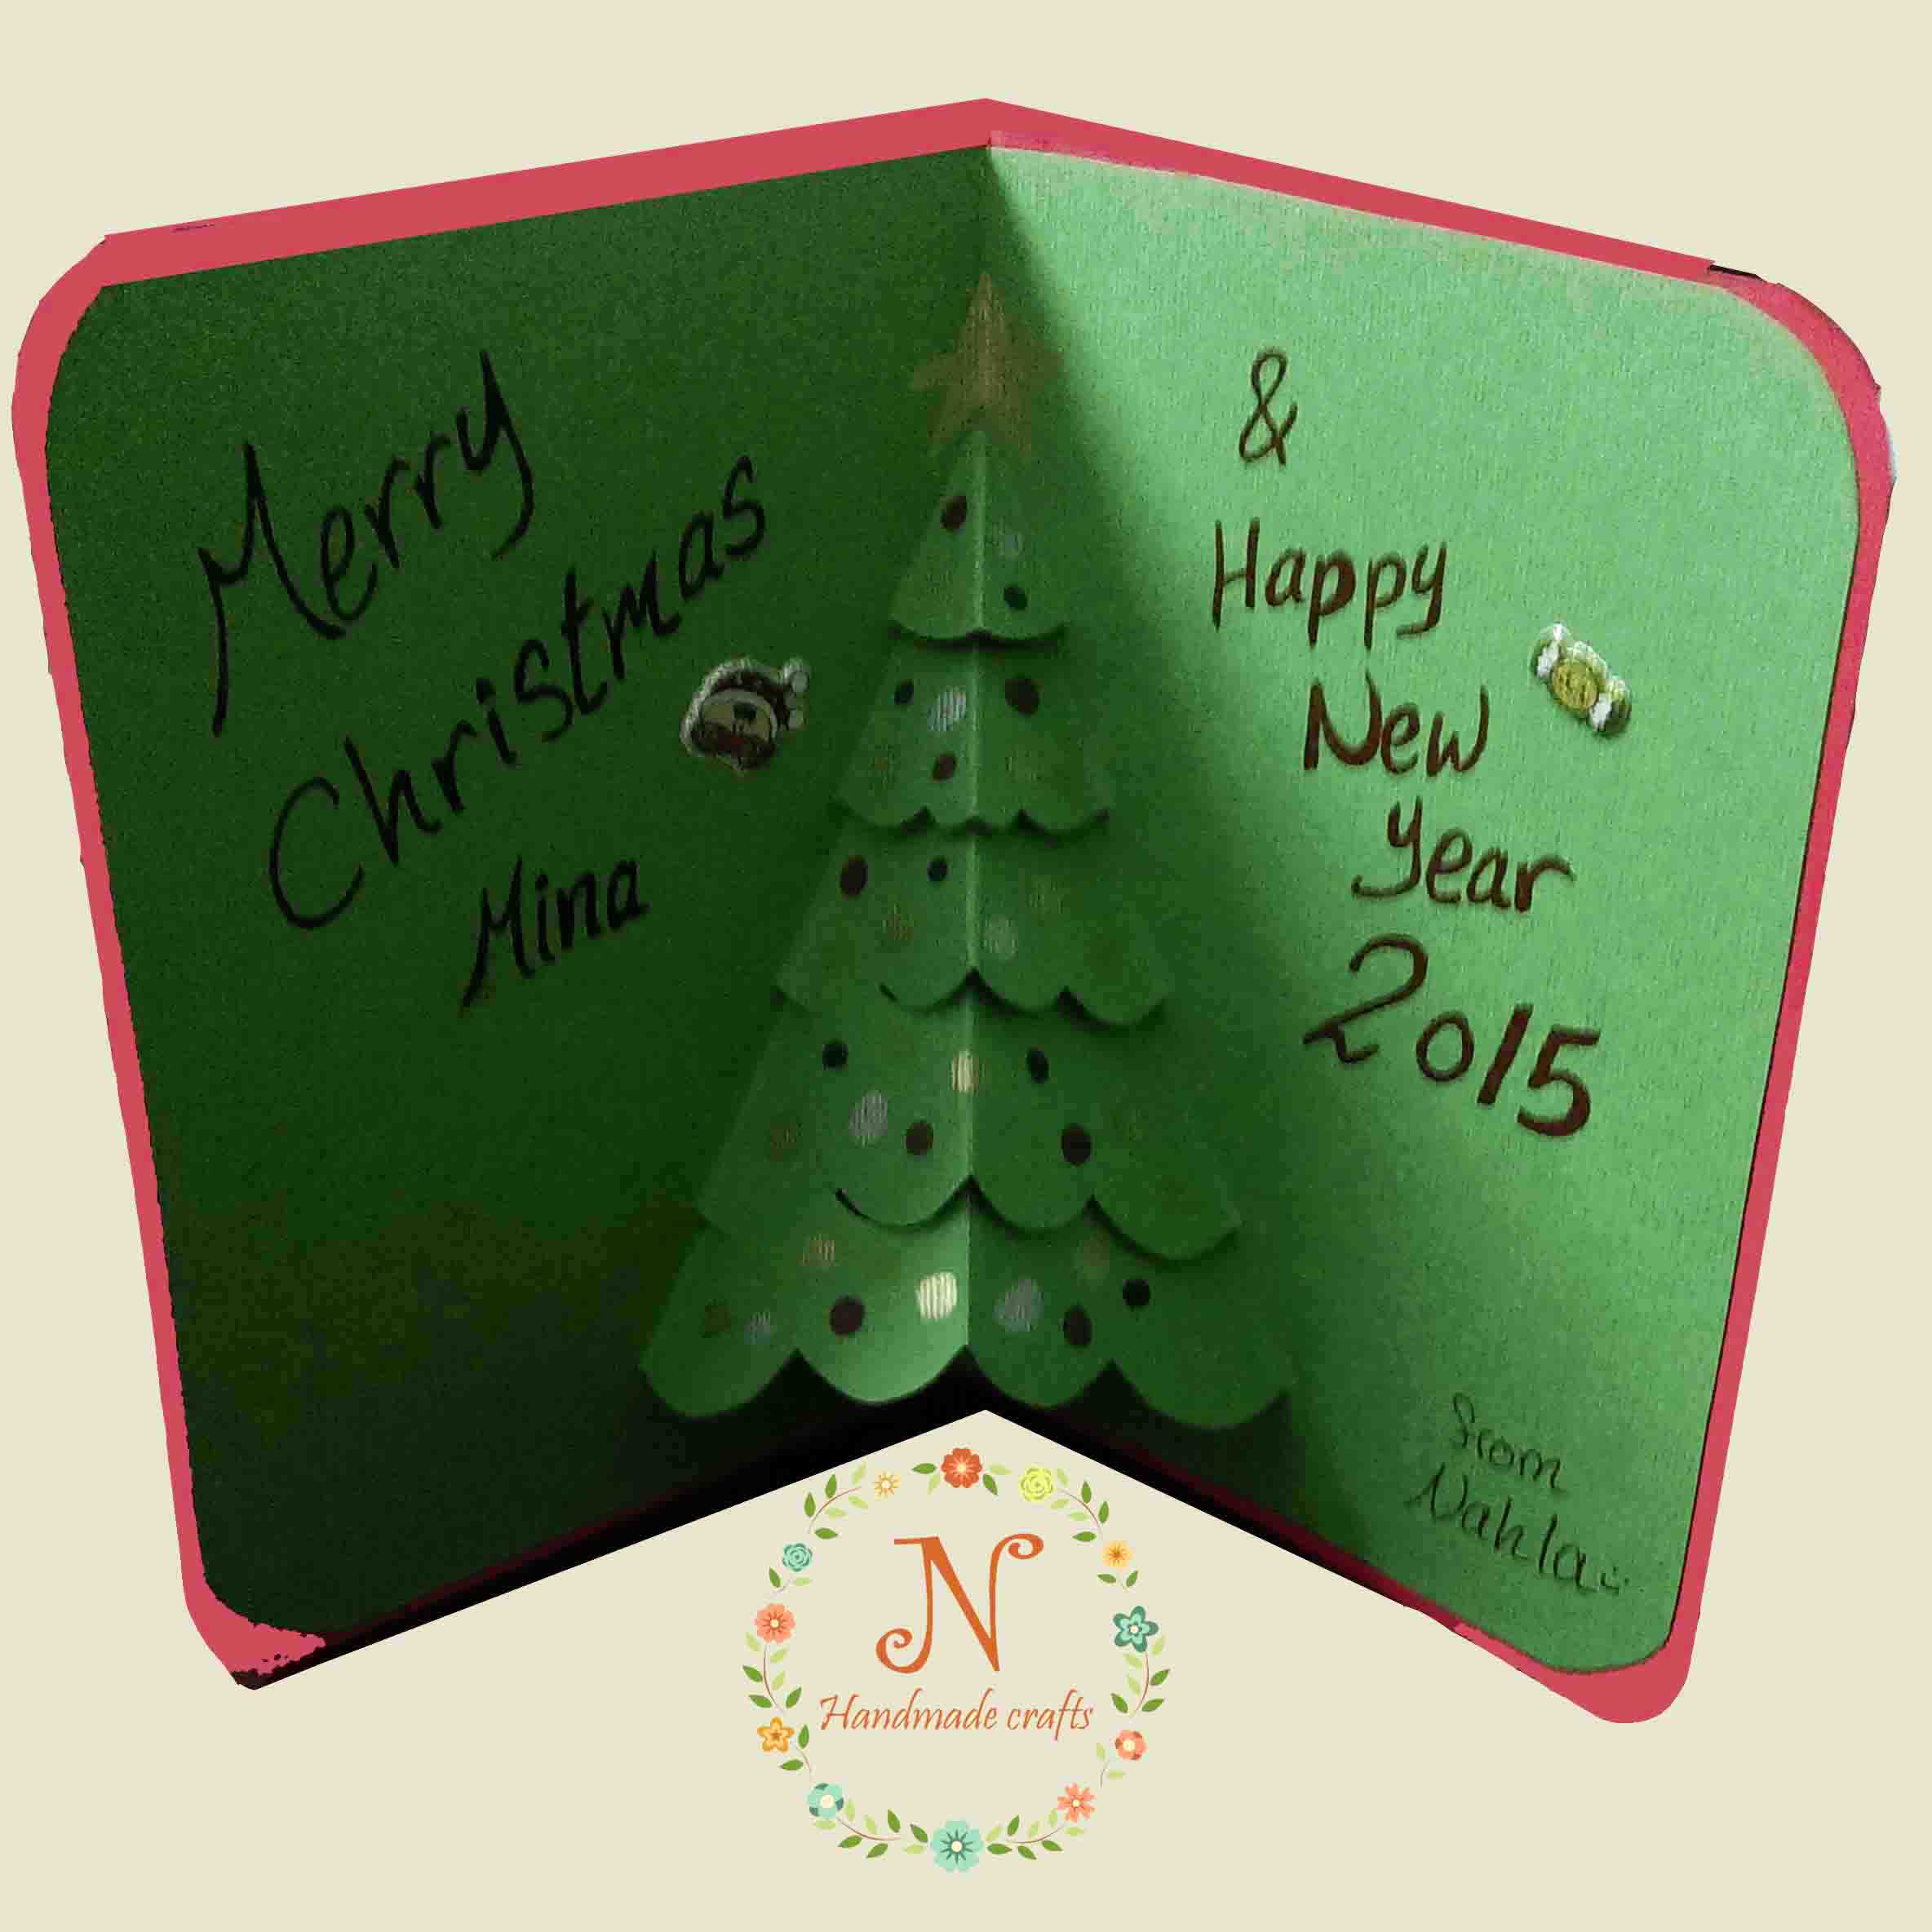 Merry
Christmas
Mina
&
Happy
New
Year
2015
from
Nahla :)
N
Handmade crafts